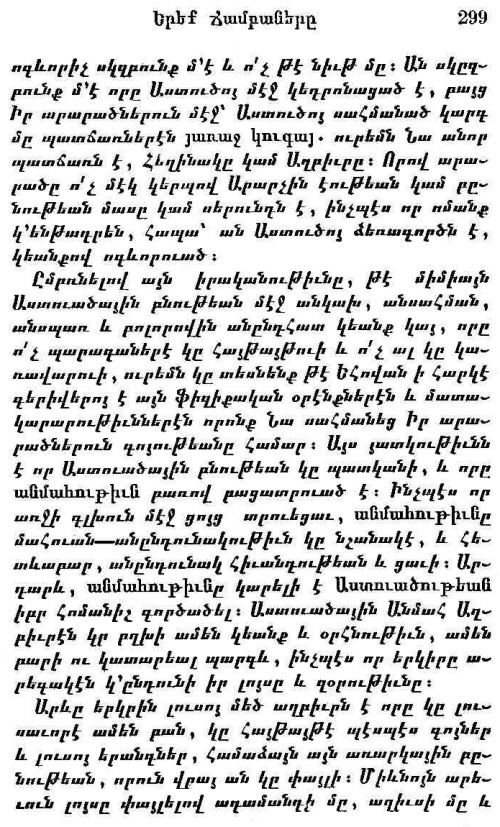 Երեք Ճամբաները 299
ոգևորիչ սկզբունք մ՚է և ո՛չ թէ նիւթ մը։ Ան սկըզ-
բունք մ՚է որը Աստուծոյ մէջ կեդրոնացած է, բայց
Իր արարածներուն մէջ՝ Աստուծոյ սահմանած կարգ
մը պատճառներէն յառաջ կուգայ. ուրեմն Նա անոր
պատճառն է, Հեղինակը կամ Աղբիւրը։ Որով արա-
րածը ո՛չ մէկ կերպով Արարչին էութեան կամ բը-
նութեան մասը կամ սերունդն է, ինչպէս որ ոմանք
կ՚ենթադրեն, հապա՝ ան Աստուծոյ ձեռագործն է,
կեանքով ոգևորուած։
Ըմբռնելով այն իրականութիւնը, թէ միմիայն
Աստուածային բնութեան մէջ անկախ, անսահման,
անսպառ և բոլորովին անընդհատ կեանք կայ, որը
ո՛չ պարագաներէ կը հայթայթուի և ո՛չ ալ կը կա-
ռավարուի, ուրեմն կը տեսնենք թէ Եհովան ի հարկէ
գերիվերոյ է այն ֆիզիքական օրէնքներէն և մատա-
կարարութիւններէն որոնք Նա սահմանեց Իր արա-
րածներուն գոյութեանը համար։ Այս յատկութիւնն
է որ Աստուածային բնութեան կը պատկանի, և որը
անմահութիւն բառով բացատրուած է։ Ինչպէս որ
առջի գլխուն մէջ ցոյց տրուեցաւ, անմահութիւնը
մահուան—անընդունակութիւն կը նշանակէ, և հե-
տևաբար, անընդունակ հիւանդութեան և ցաւի։ Ար-
դարև, անմահութիւնը կարելի է Աստուածութեան
իբր հոմանիշ գործածել։ Աստուածային Անմահ Աղ-
բիւրէն կը բղխի ամեն կեանք և օրհնութիւն, ամեն
բարի ու կատարեալ պարգև, ինչպէս որ երկիրը ա-
րեգակէն կ՚ընդունի իր լոյսը և զօրութիւնը։
Արևը երկրին լուսոյ մեծ աղբիւրն է որը կը լու-
սաւորէ ամեն բան, կը հայթայթէ պէսպէս գոյներ
և լուսոյ երանգներ, համաձայն այն առարկային բը-
նութեան, որուն վրայ ան կը փայլի։ Միևնոյն արե-
ւուն լոյսը փայլելով ադամանդի մը, աղիւսի մը և